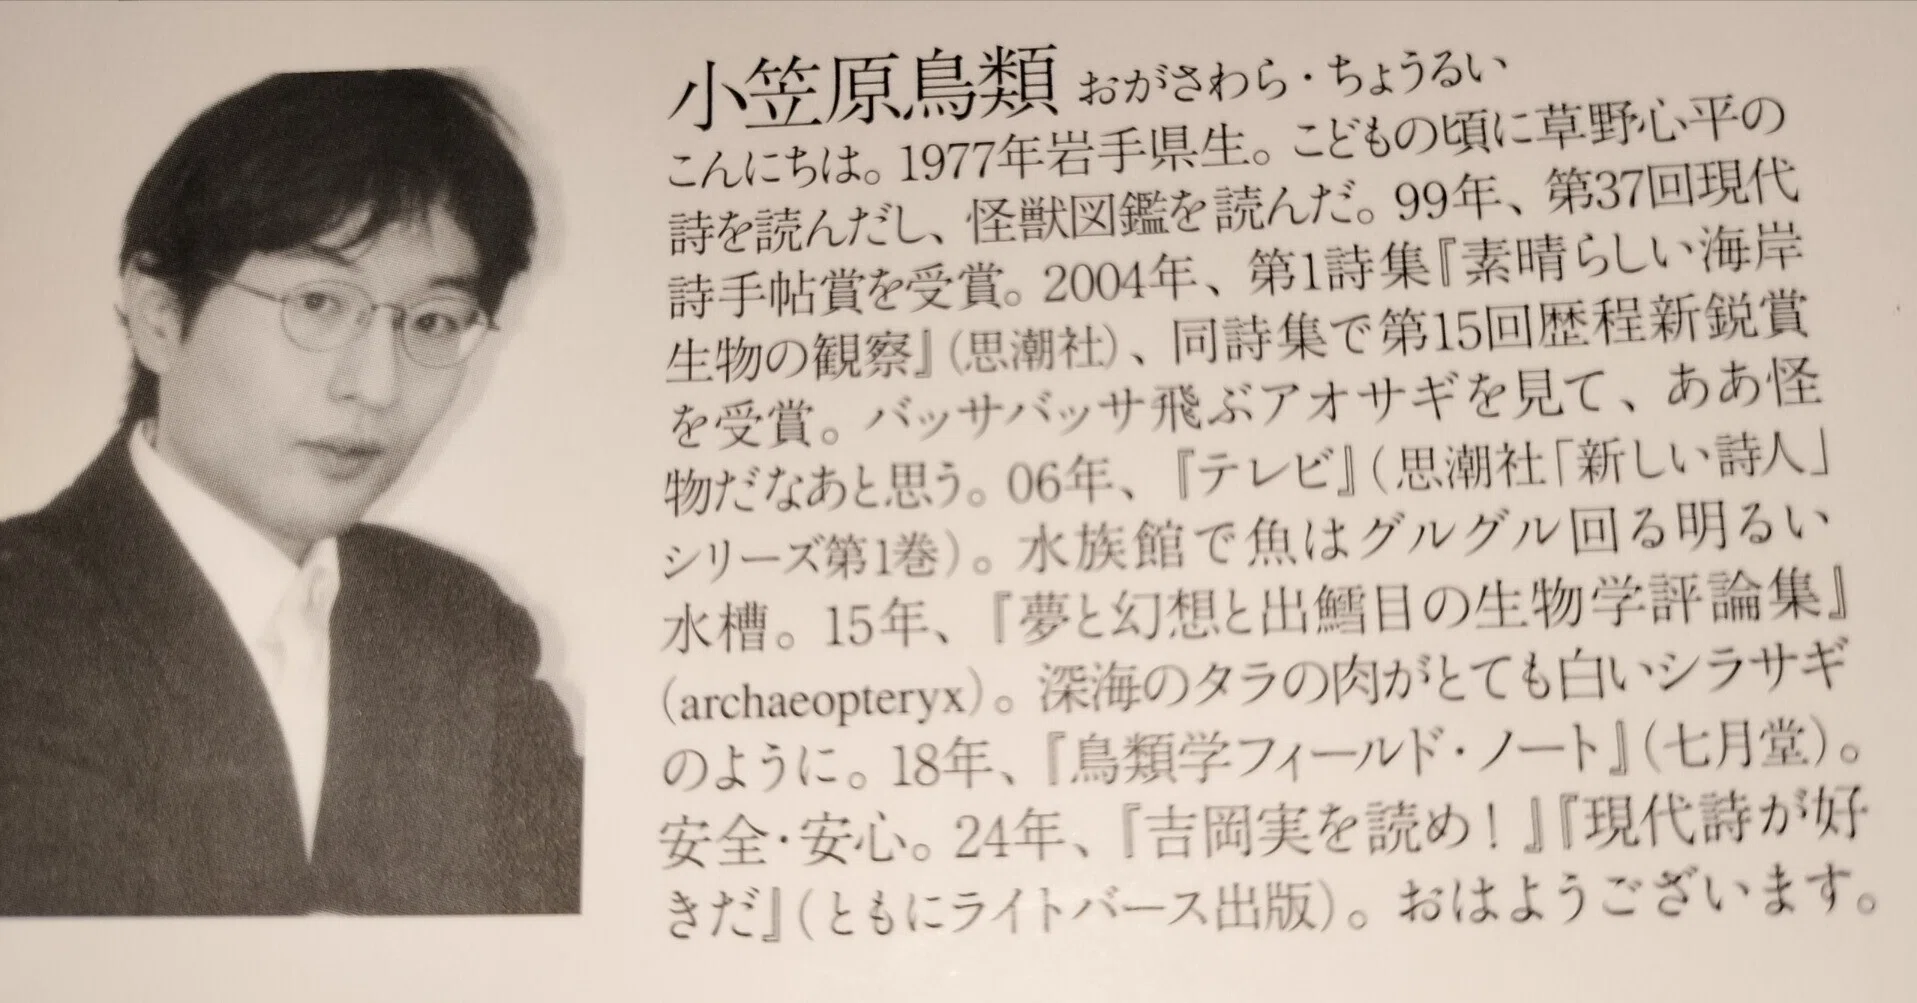 小笠原鳥類 おがさわら・ちょうるい
こんにちは。1977年岩手県生。こどもの頃に草野心平の
詩を読んだし、怪獣図鑑を読んだ。99年、第37回現代
詩手帖賞を受賞。2004年、第1詩集『素晴らしい海岸
生物の観察』(思潮社)、同詩集で第15回歴程新鋭賞
を受賞。バッサバッサ飛ぶアオサギを見て、ああ怪
物だなあと思う。06年、『テレビ』(思潮社「新しい詩人」
シリーズ第1巻)。水族館で魚はグルグル回る明るい
水槽。15年、『夢と幻想と出鱈目の生物学評論集』
(archaeopteryx)。深海のタラの肉がとても白いシラサギ
のように。18年、『鳥類学フィールド・ノート』(七月堂)。
安全・安心。24年、『吉岡実を読め!』『現代詩が好
きだ』(ともにライトバース出版)。おはようございます。